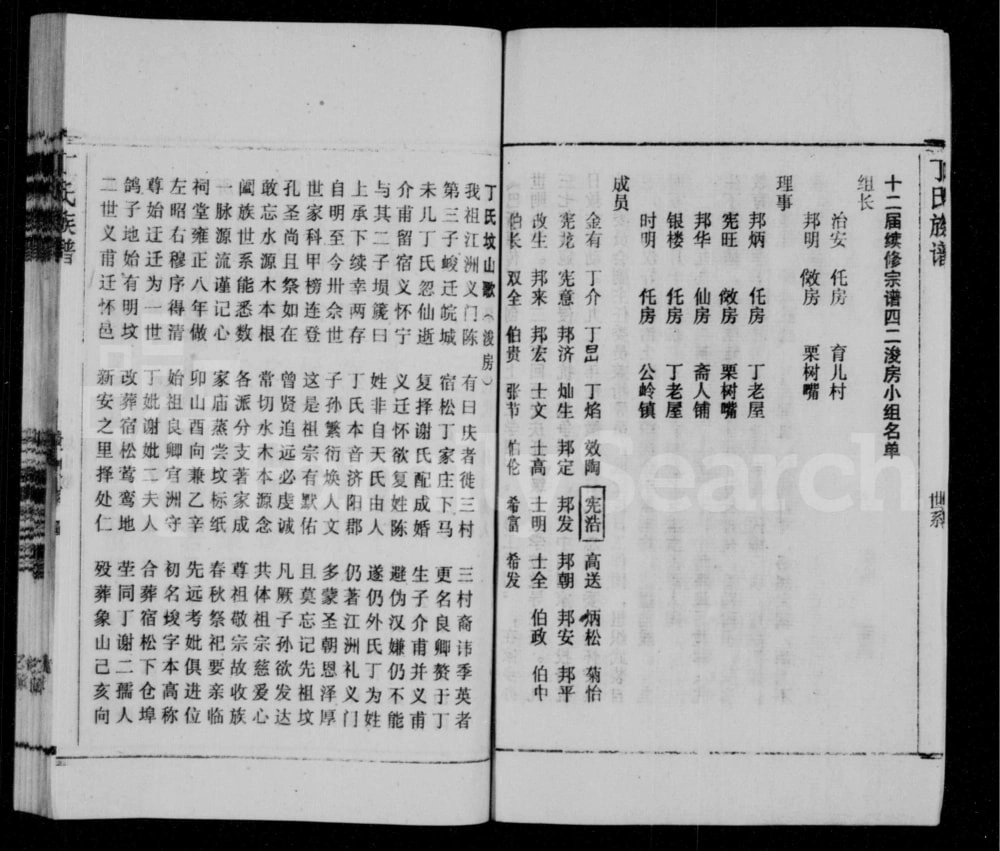 丁氏族谱 世系
十二届续修宗谱四二浚房小组名单
组长
治安 仼房 育儿村
邦明 敓房 栗树嘴
理事
邦炳 仼房 丁老屋
宪旺 敓房 栗树嘴
邦华 仙房 斋人铺
银楼 仼房 丁老屋
时明 仼房 公岭镇
成员
金有 丁介 丁昷 丁焰 效陶 宪浩 高送 炳松 菊怡
宪龙 宪意 邦济 灿生 邦定 邦发 邦朝 邦安 邦平
改生 邦来 邦宏 士文 士高 士明 士全 伯政 伯中
伯长 双全 伯贵 张节 伯伦 希富 希发
丁氏坟山歌（浚房）
我祖江洲义门陈 有曰庆者徙三村 三村裔讳季英者
第三子峻迁皖城 宿松丁家庄下马 更名良卿赘于丁
未儿丁氏忽仙逝 复择谢氏配成婚 生子介甫并义甫
介甫留宿义怀宁 义迁怀欲复姓陈 避伪汉嫌仍不能
与其二子埙篪曰 姓非自天氏由人 遂仍外氏丁为姓
上承下续幸两存 丁氏本音济阳郡 仍著江洲礼义门
自明至今卅佘世 子孙繁衍焕人文 多蒙圣朝恩泽厚
世家科甲榜连登 这是祖宗有默佑 且莫忘记先祖坟
孔圣尚且祭如在 曾贤追远必虔诚 凡厥子孙欲发达
敢忘水源木本根 常切水木本源念 共体祖宗慈爱心
阖族世系能悉数 各派分支著家成 尊祖敬宗故收族
一脉源流谨记心 家庙蒸尝坟标纸 春秋祭祀要亲临
祠堂雍正八年做 卯山酉向兼乙辛 先远考妣俱进位
左昭右穆序得清 始祖良卿官洲守 初名埈字本高称
尊始迁迁为一世 丁妣谢妣二夫人 合葬宿松下仓埠
鸽子地始有明坟 改葬宿松莺鸾地 茔同丁谢二孺人
二世义甫迁怀邑 新安之里择处仁 殁葬象山己亥向
丁氏族谱